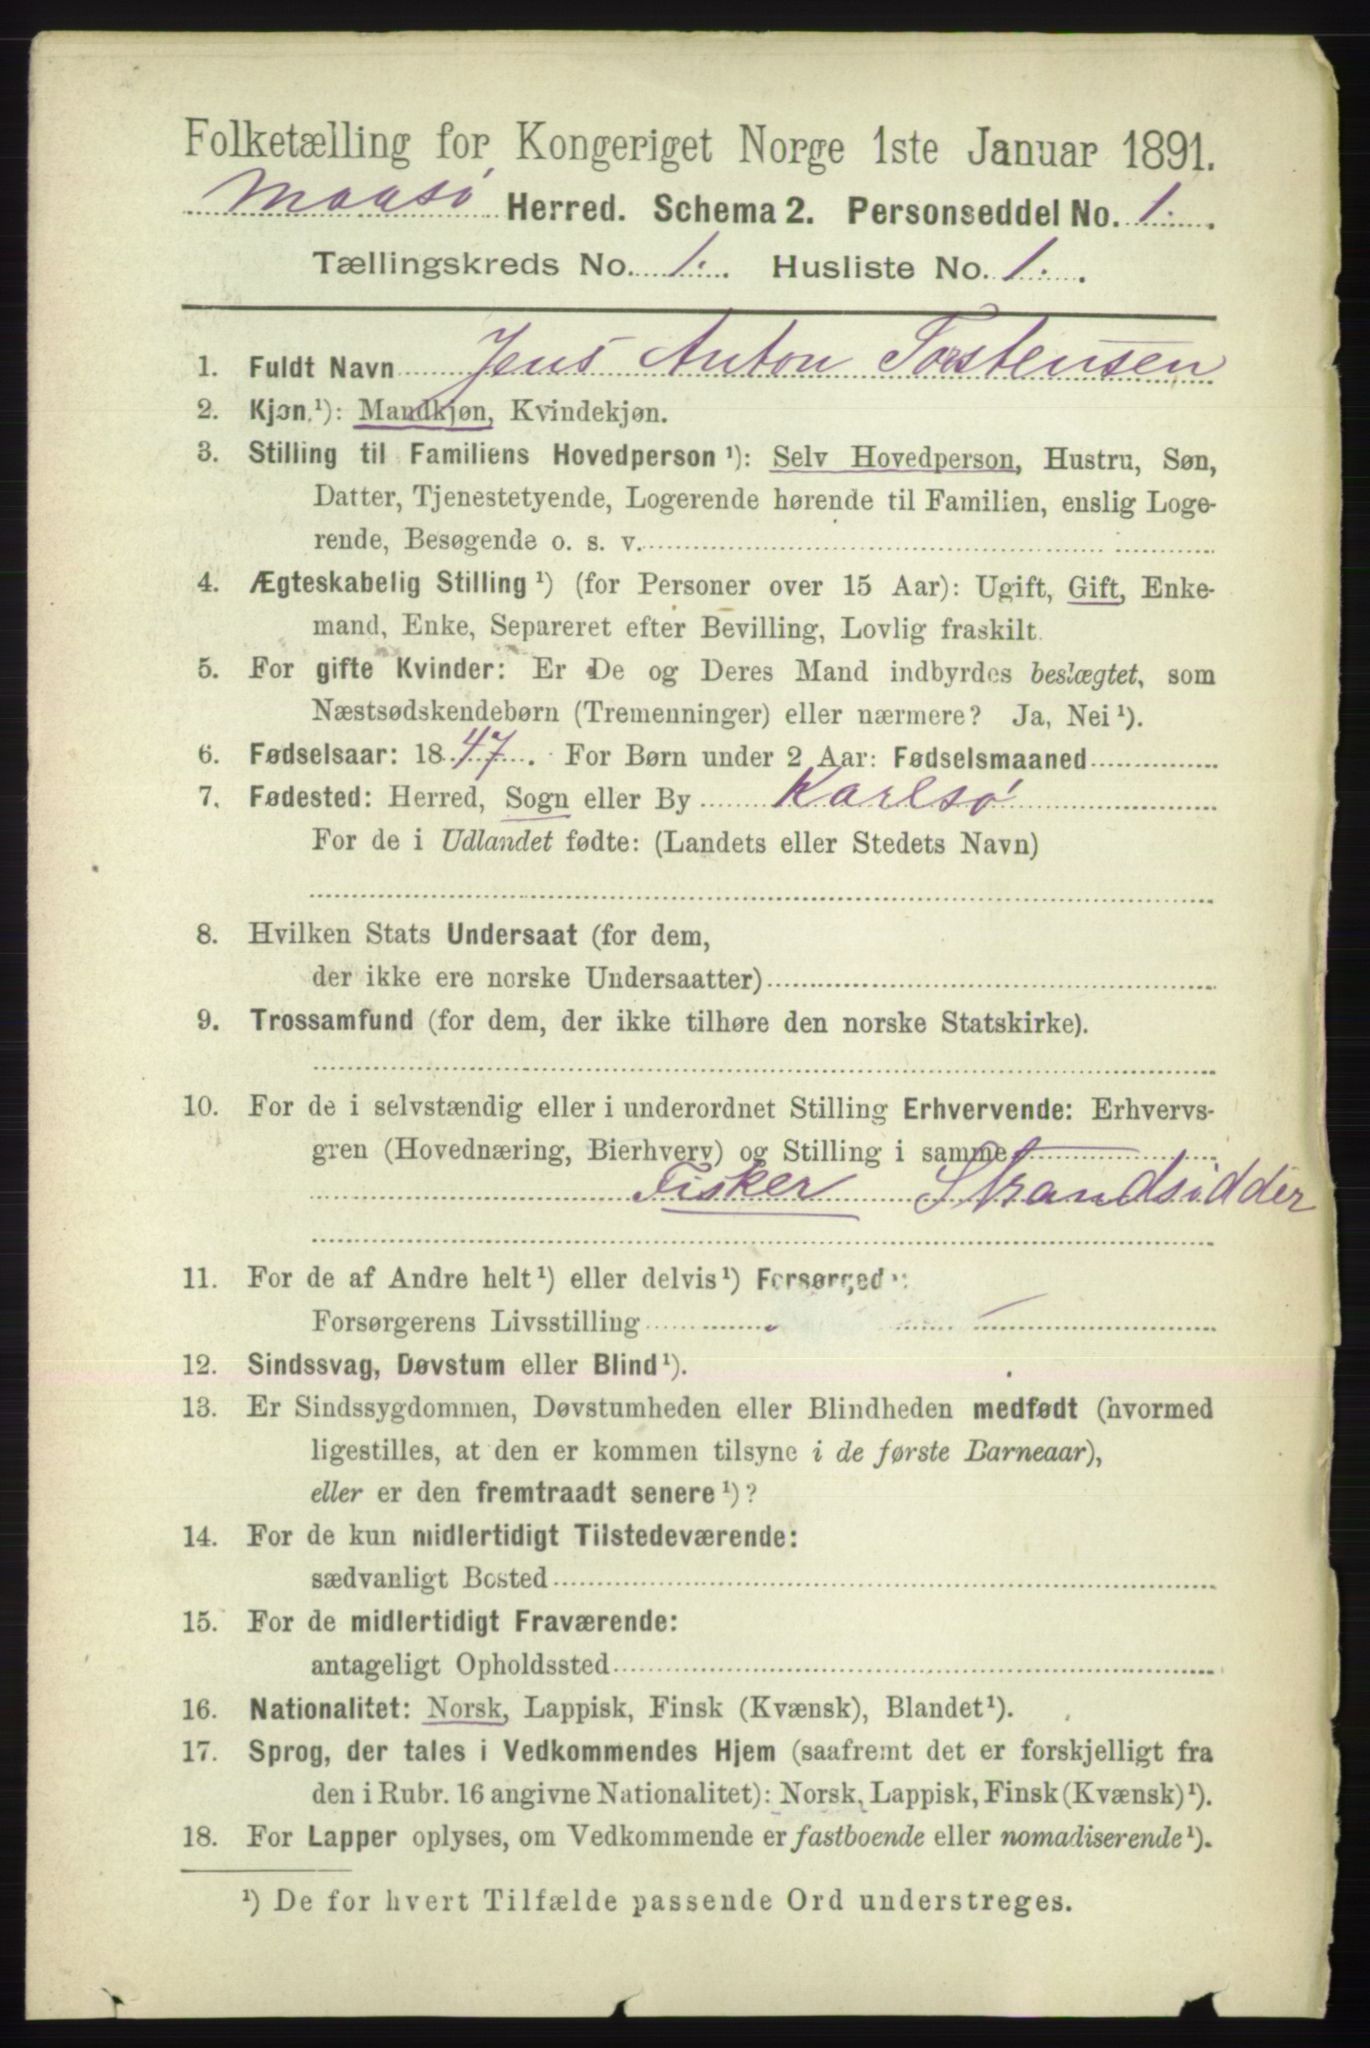 Folketælling for Kongeriget Norge 1ste Januar 1891.
Maasø Herred. Schema 2. Personseddel No. 1.
Tællingskreds No. 1. Husliste No. 1.
1. Fuldt Navn Jens Anton Torstensen
2. Kjøn.¹): Mandkjøn, Kvindekjøn.
3. Stilling til Familiens Hovedperson¹): Selv Hovedperson, Hustru, Søn,
Datter, Tjenestetyende, Logerende hørende til Familien, enslig Loge-
rende, Besøgende o. s. v.
4. Ægteskabelig Stilling¹) (for Personer over 15 Aar): Ugift, Gift, Enke-
mand, Enke, Separeret efter Bevilling, Lovlig fraskilt.
5. For gifte Kvinder: Er De og Deres Mand indbyrdes beslægtet, som
Næstsødskendebørn (Tremenninger) eller nærmere? Ja, Nei¹).
6. Fødselsaar: 1847. For Børn under 2 Aar: Fødselsmaaned
7. Fødested: Herred, Sogn eller By Karlsø
For de i Udlandet fødte: (Landets eller Stedets Navn)
8. Hvilken Stats Undersaat (for dem,
der ikke ere norske Undersaatter)
9. Trossamfund (for dem, der ikke tilhøre den norske Statskirke).
10. For de i selvstændig eller i underordnet Stilling Erhvervende: Erhvervs-
gren (Hovednæring, Bierhverv) og Stilling i samme
Fisker Strandsidder
11. For de af Andre helt¹) eller delvis¹) Forsørgede:
Forsørgerens Livsstilling
12. Sindssvag, Døvstum eller Blind¹).
13. Er Sindssygdommen, Døvstumheden eller Blindheden medfødt (hvormed
ligestilles, at den er kommen tilsyne i de første Barneaar),
eller er den fremtraadt senere¹)?
14. For de kun midlertidigt Tilstedeværende:
sædvanligt Bosted
15. For de midlertidigt Fraværende:
antageligt Opholdssted
16. Nationalitet: Norsk, Lappisk, Finsk (Kvænsk), Blandet¹).
17. Sprog, der tales i Vedkommendes Hjem (saafremt det er forskjelligt fra
den i Rubr. 16 angivne Nationalitet): Norsk, Lappisk, Finsk (Kvænsk)¹).
18. For Lapper oplyses, om Vedkommende er fastboende eller nomadiserende¹).
¹) De for hvert Tilfælde passende Ord understreges.